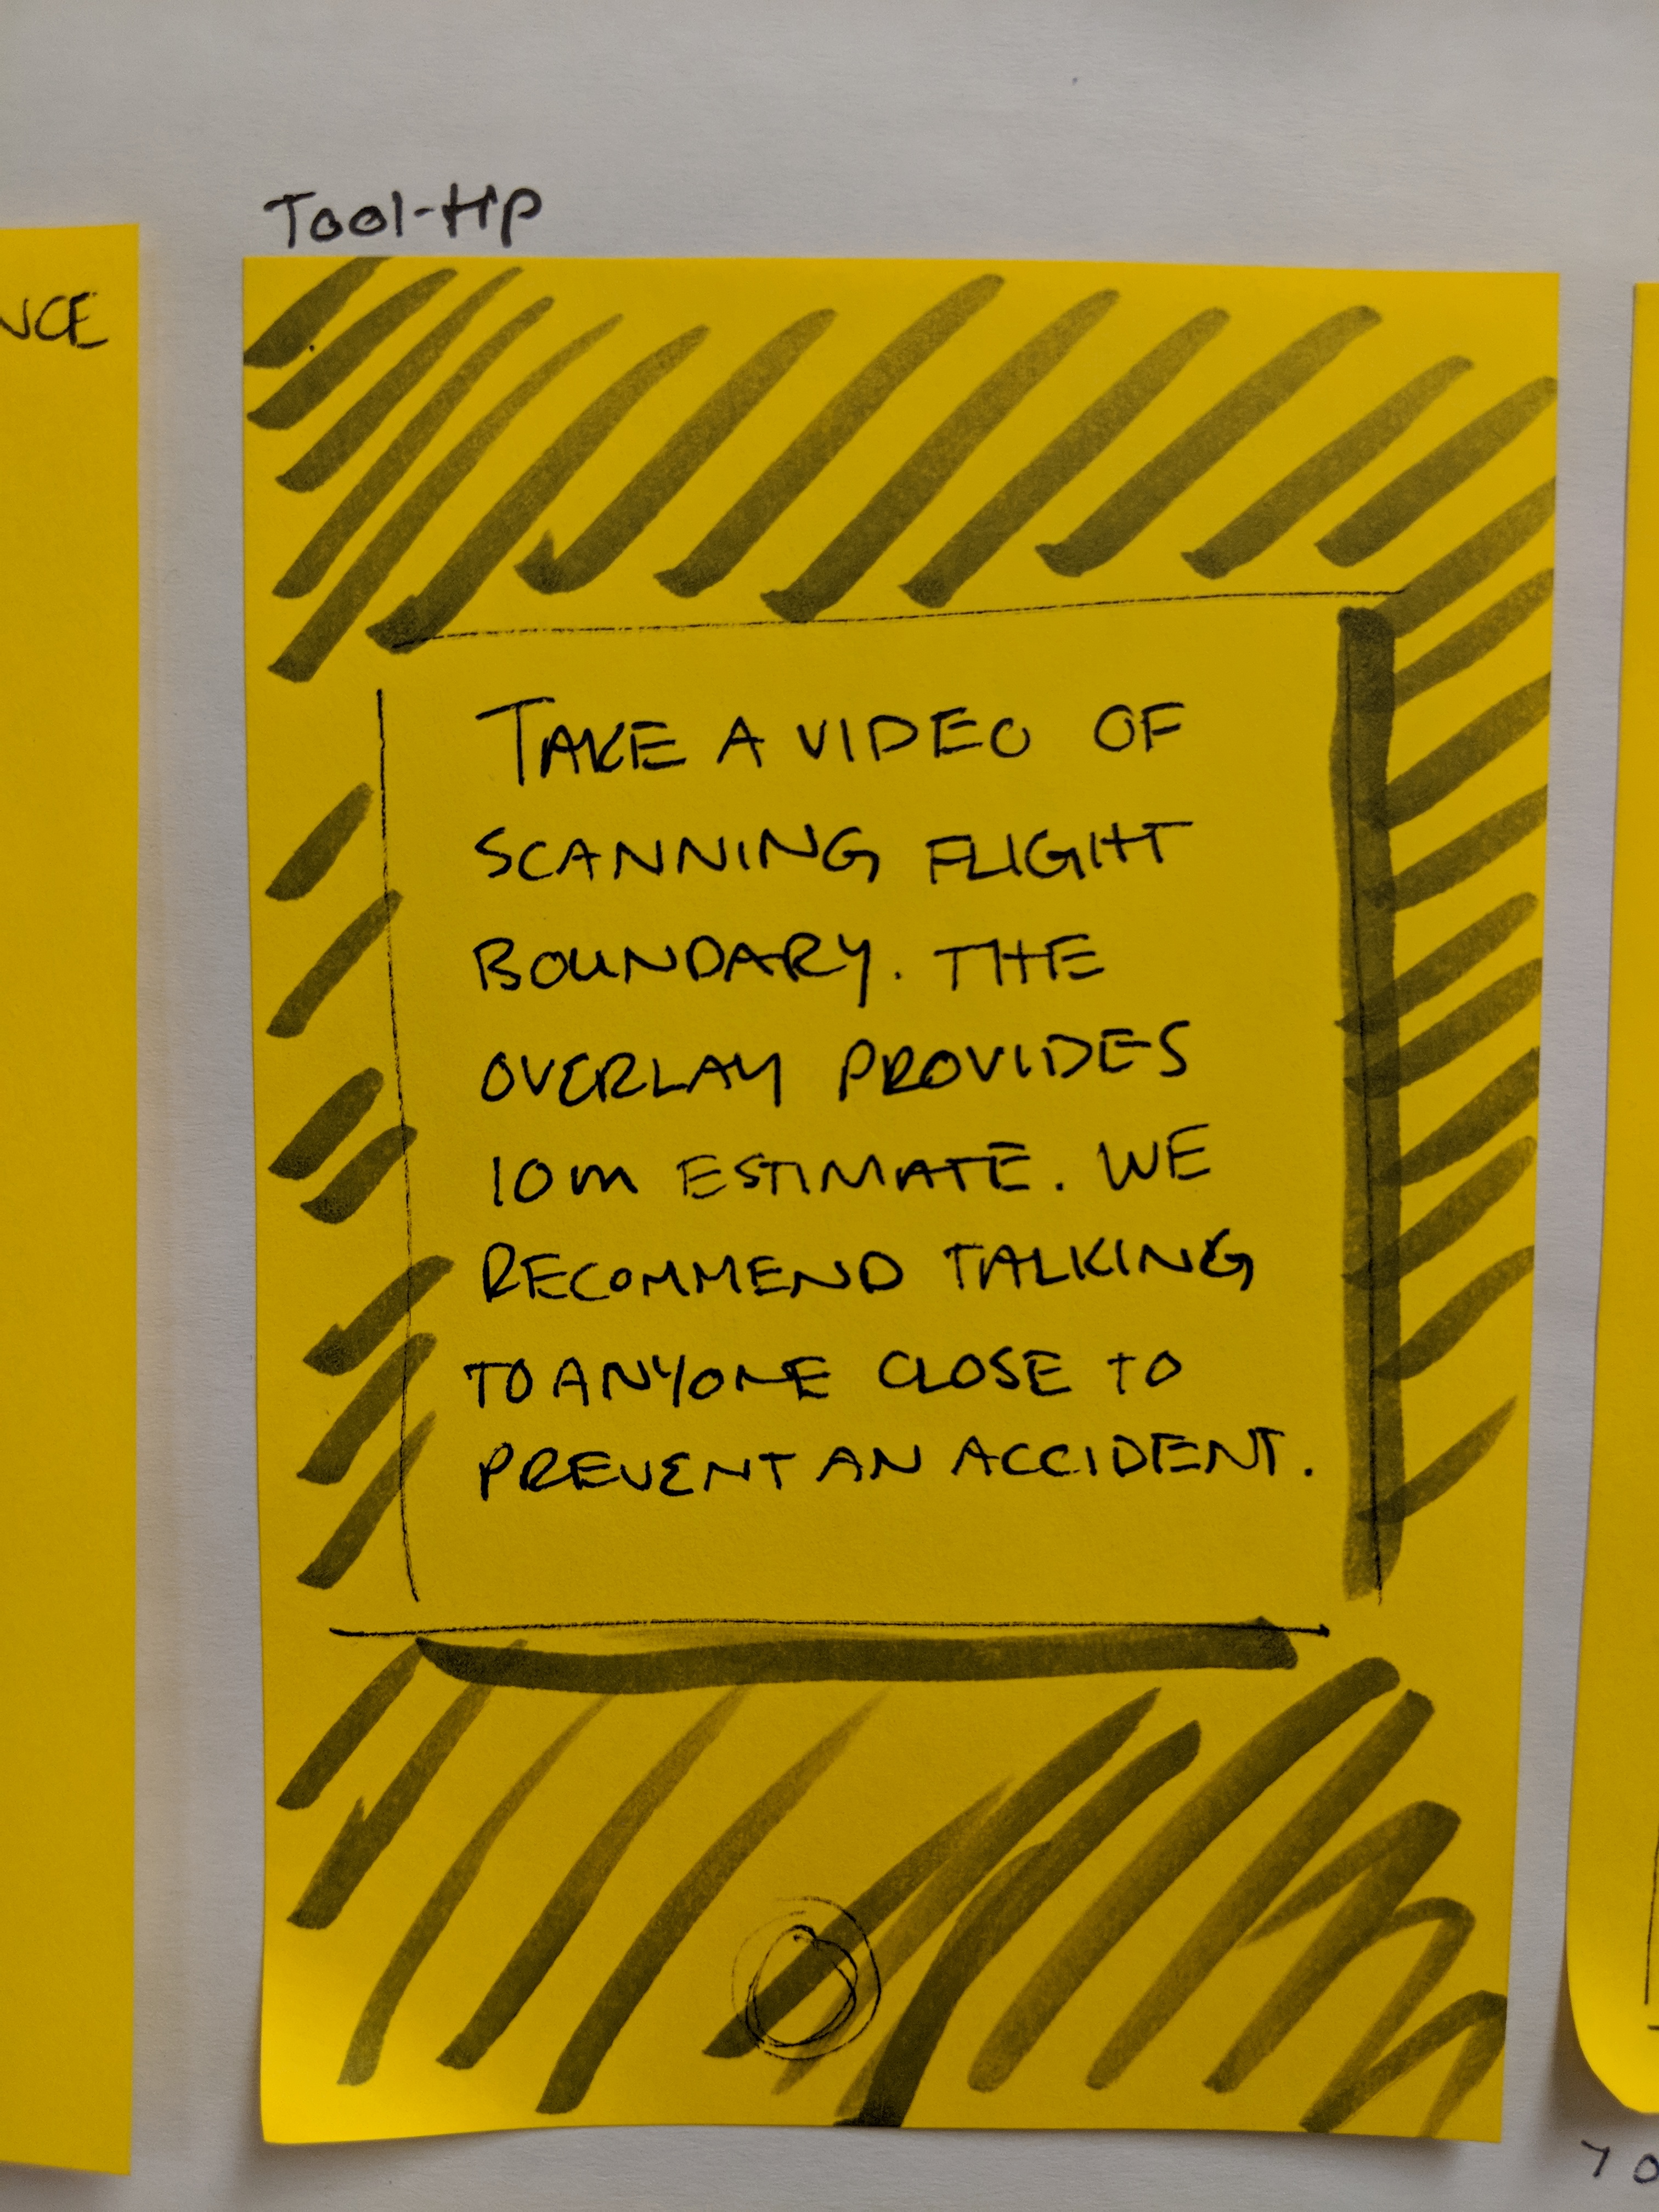 Tool-HP
NCE
TAKE A VIDEO OF
SCANNING FLIGHT
BOUNDARY. THE
OVERLAY PROVIDES
10m ESTIMATE. WE
RECOMMEND TALKING
TO ANYONE CLOSE TO
PREVENT AN ACCIDENT.